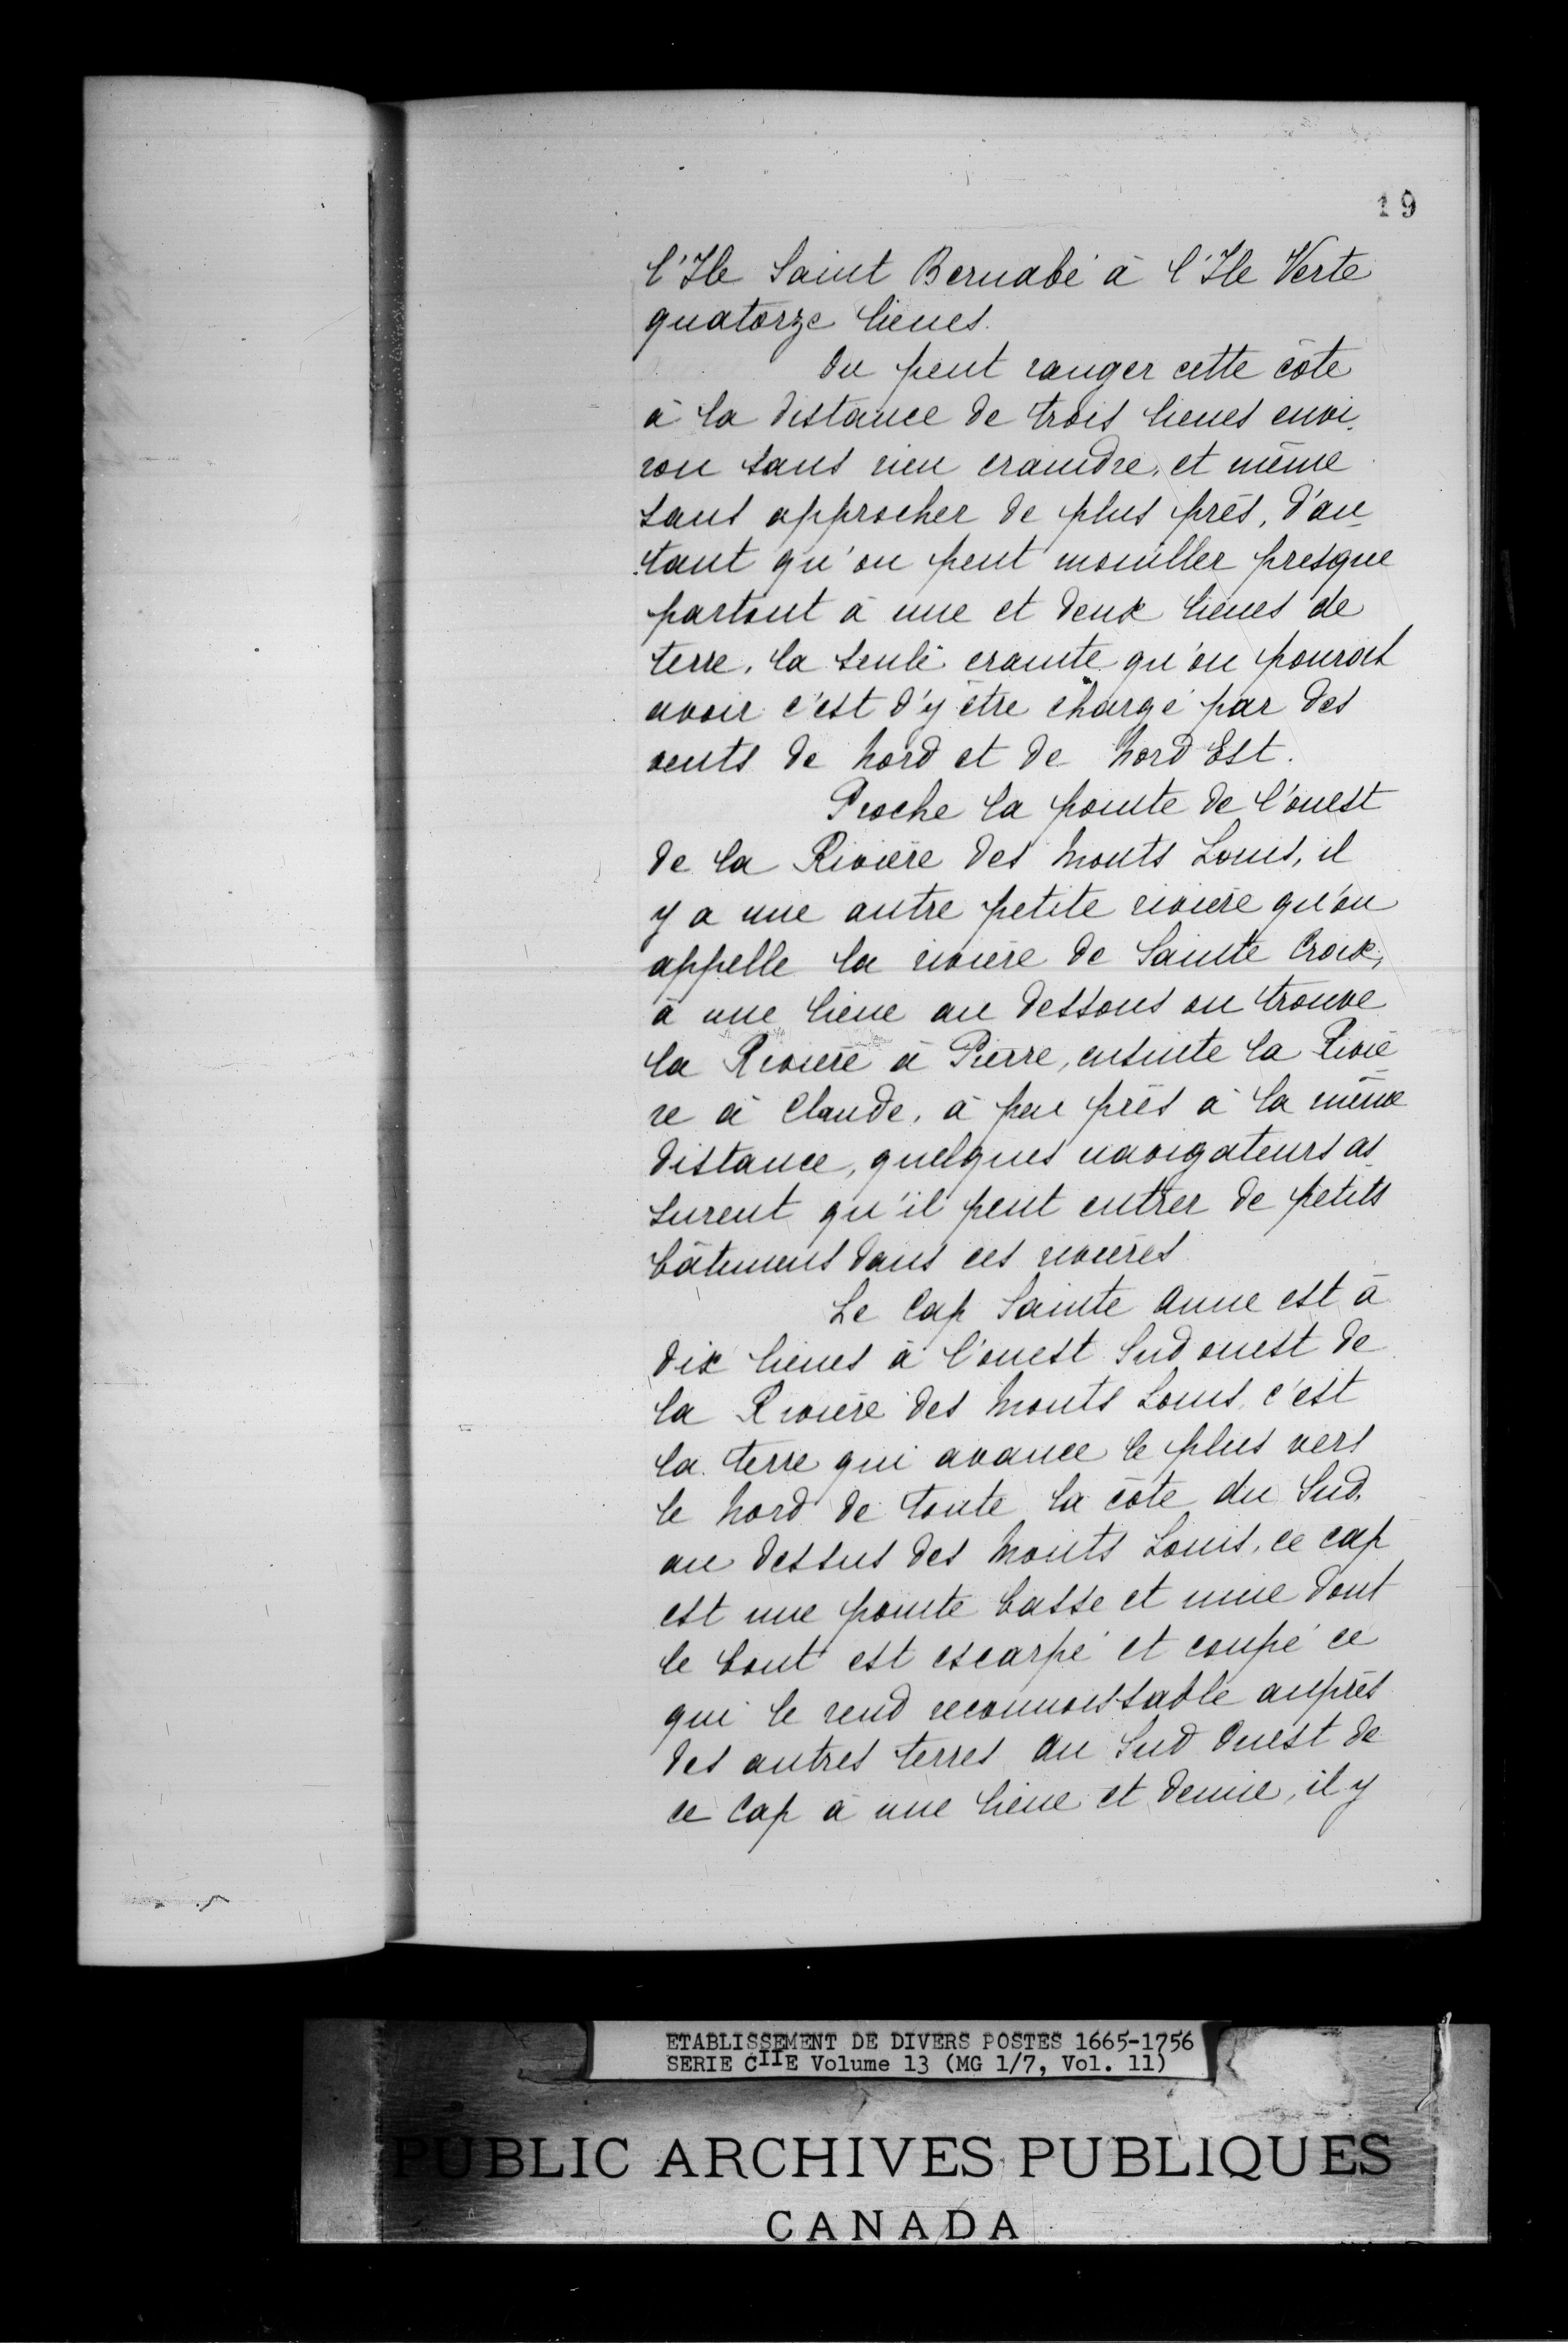 19
l'Ile Saint Bernabé à l'Ile Verte
quatorze lieues.
On peut ranger cette côte
à la distance de trois lieues envi-
ron sans rien craindre, et même
sans approcher de plus près, d'au-
tant qu'on peut mouiller presque
partout à une et deux lieues de
terre, la seule crainte qu'on pouroit
avoir c'est d'y être chargé par des
vents de Nord et de Nord Est.
Proche la pointe de l'ouest
de la Rivière des Monts Louis, il
y a une autre petite rivière qu'on
appelle la rivière de Sainte Croix,
à une lieue au dessous on trouve
la Rivière à Pierre, ensuite la Riviè-
re à Claude, à peu près à la même
distance, quelques navigateurs as-
surent qu'il peut entrer de petits
bâtimens dans ces rivières
Le Cap Sainte Anne est à
dix lieues à l'ouest Sud ouest de
la Rivière des Monts Louis, c'est
la terre qui avance le plus vers
le Nord de toute la côte du Sud,
au dessus des Monts Louis, ce cap
est une pointe basse et unie dont
le bout est escarpé et coupé ce
qui le rend reconnoissable auprès
des autres terres au Sud Ouest de
ce Cap à une lieue et demie, il y
ETABLISSEMENT DE DIVERS POSTES 1665-1756
SERIE CIIE Volume 13 (MG 1/7, Vol. 11)
PUBLIC ARCHIVES PUBLIQUES
CANADA